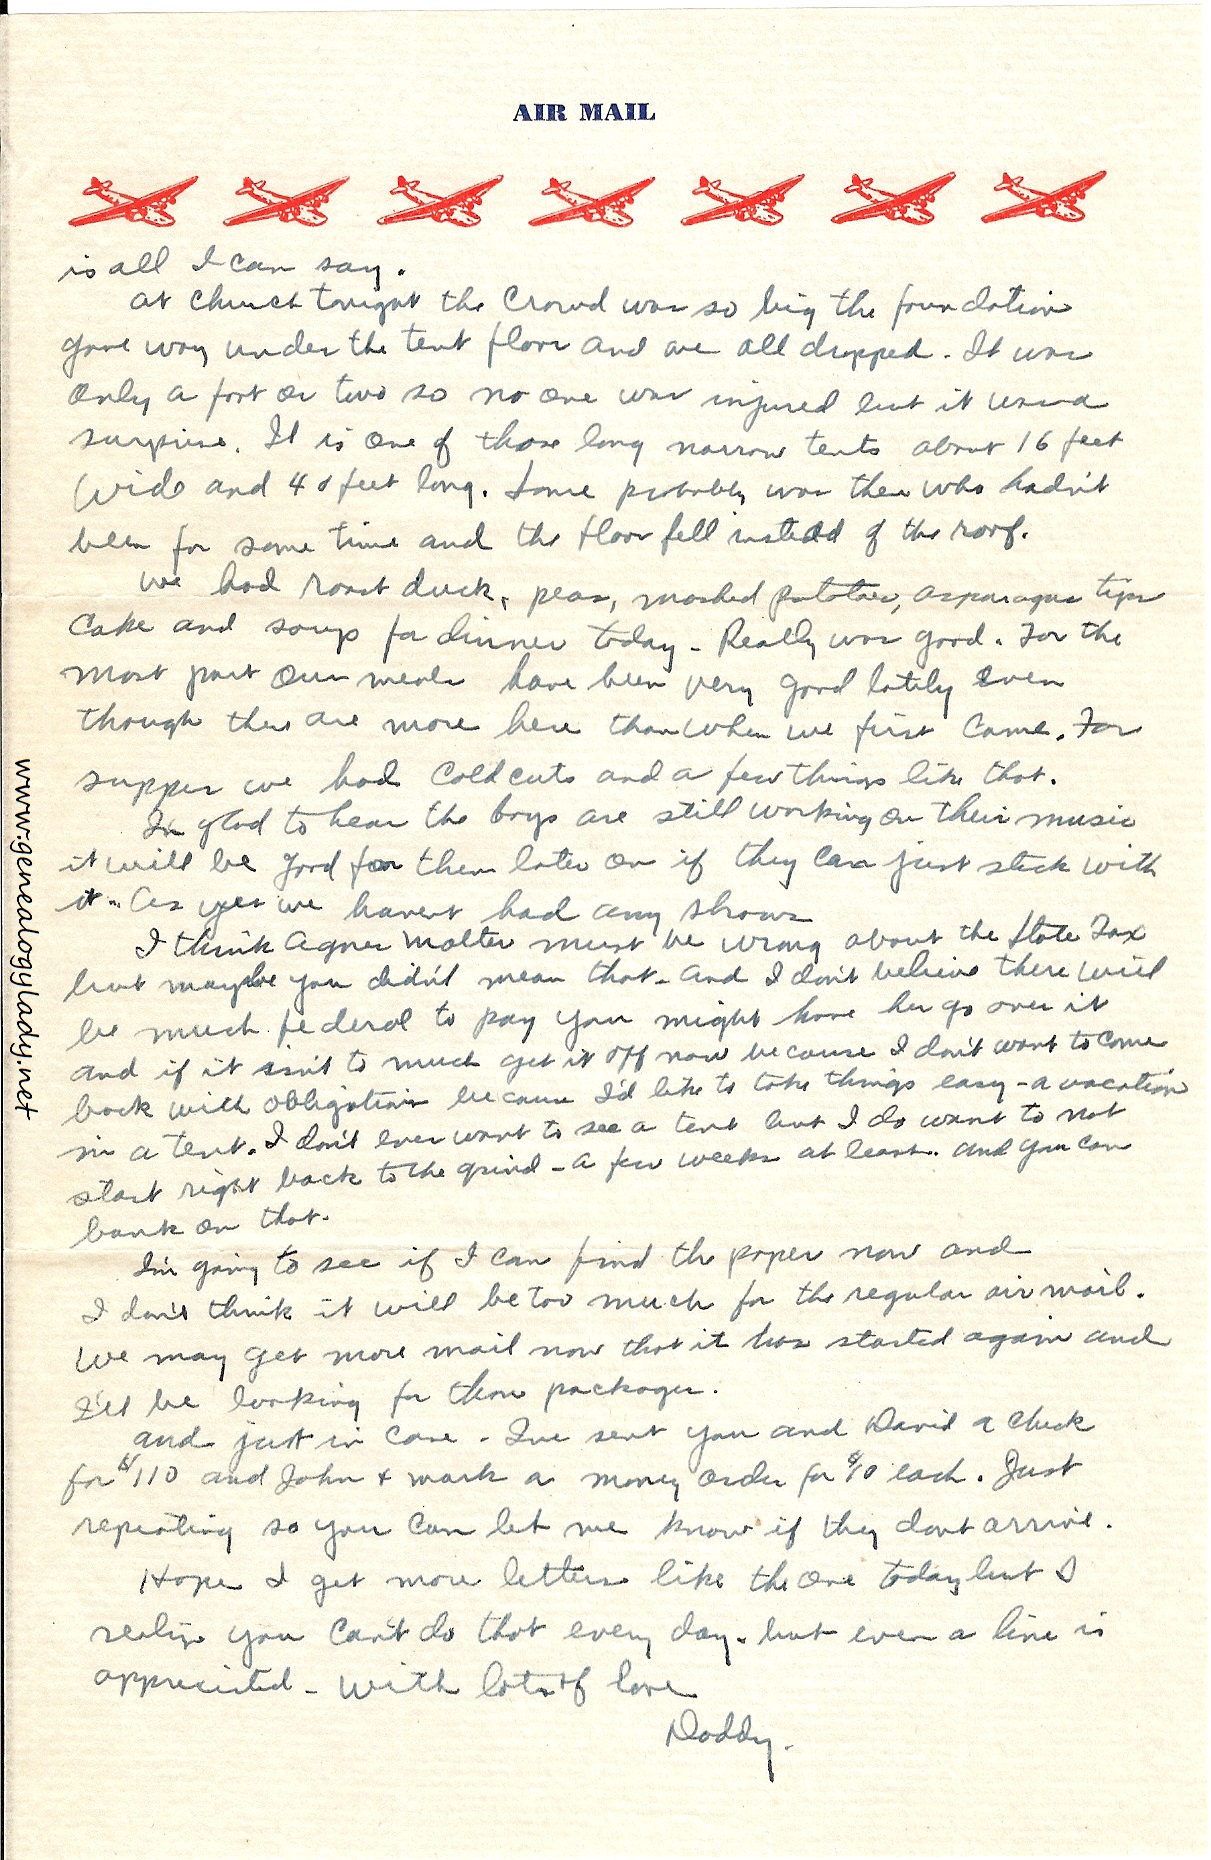 AIR MAIL
is all I can say.
At church tonight the crowd was so big the foundation
gave way under the tent floor and we all dropped. It was
only a foot or two so no one was injured but it was a
surprise. It is one of those long narrow tents about 16 feet
wide and 40 feet long. Some probably was there who hadn't
been for some time and the floor fell instead of the roof.
We had roast duck, peas, mashed potatoes, asparagus tips
cake and soup for dinner today - Really was good. For the
most part our meals have been very good lately even
though there are more here than when we first came. For
supper we had cold cuts and a few things like that.
I'm glad to hear the boys are still working on their music
it will be good for them later on if they can just stick with
it - As yet we havent had any shows
I think Agnes Molter must be wrong about the State Tax
but maybe you didn't mean that - And I don't believe there will
be much federal to pay you might have her go over it
and if it isn't to much get it off now because I don't want to come
back with obligations because I'd like to take things easy - a vacation
in a tent. I don't ever want to see a tent but I do want to not
start right back to the grind - a few weeks at least. And you can
bank on that.
I'm going to see if I can find the paper now and
I don't think it will be too much for the regular air mail.
We may get more mail now that it has started again and
I'll be looking for those packages.
And just in case - I've sent you and David a check
for $110 and John + Mark a money order for $10 each. Just
repeating so you can let me know if they dont arrive.
Hope I get more letters like the one today but I
realize you can't do that every day - but even a line is
appreciated - With lots of love
Daddy.
www.genealogylady.net